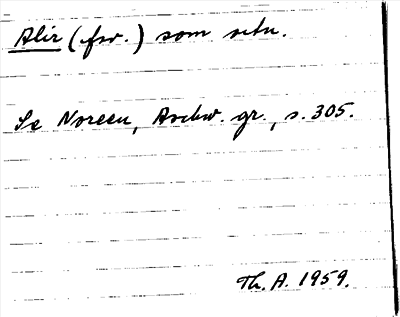 Alir (fsv.) som setn.
Se Noreen, Aschw. gr., s. 305.
Th. A. 1959.